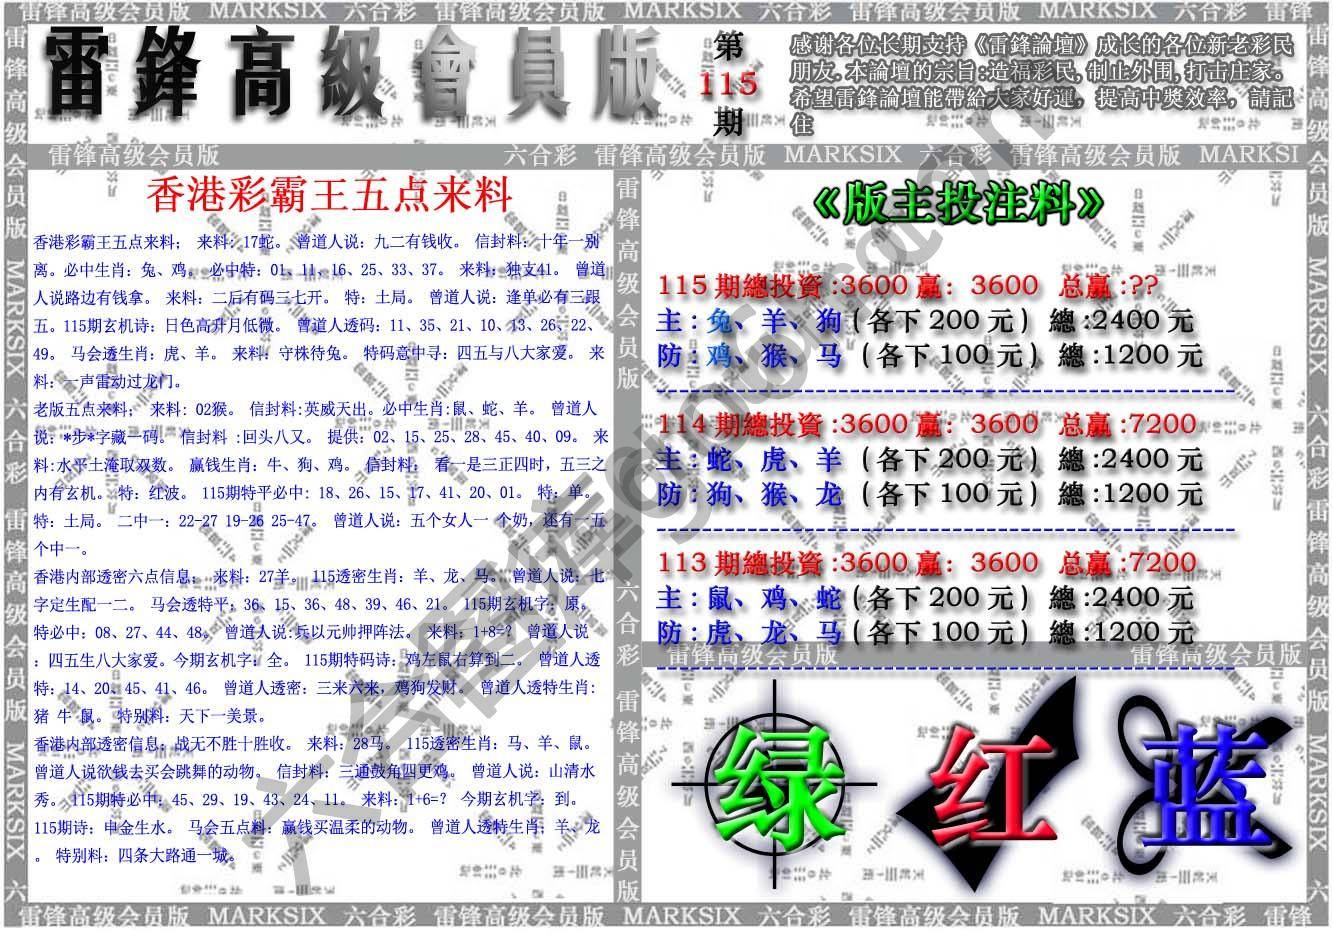 雷锋高级会员版 MARKSIX 六合彩 雷锋高级会员版 MARKSIX 六合彩 雷锋高级会员版 MARKSIX 六合彩 雷锋
雷鋒高級會員版
第
115
期
感谢各位长期支持《雷鋒論壇》成长的各位新老彩民
朋友.本論壇的宗旨:造福彩民,制止外围,打击庄家。
希望雷鋒論壇能帶給大家好運，提高中獎效率，請記
住
雷锋高级会员版 六合彩 雷锋高级会员版 MARKSIX 六合彩 雷锋高级会员版 MARKSI
香港彩霸王五点来料
香港彩霸王五点来料； 来料：17蛇。 曾道人说：九二有钱收。 信封料：十年一别
离。必中生肖：兔、鸡。 必中特：01、11、16、25、33、37。 来料：独支41。 曾道
人说路边有钱拿。 来料：二后有码三七开。 特：土局。 曾道人说：逢单必有三跟
五。115期玄机诗：日色高升月低微。 曾道人透码：11、35、21、10、13、26、22、
49。 马会透生肖：虎、羊。 来料：守株待兔。 特码意中寻：四五与八大家爱。 来
料：一声雷动过龙门。
老版五点来料； 来料：02猴。 信封料:英威天出。必中生肖:鼠、蛇、羊。 曾道人
说：*步*字藏一码。 信封料 :回头八又。 提供：02、15、25、28、45、40、09。 来
料:水平土淹取双数。 赢钱生肖：牛、狗、鸡。 信封料； 看一是三正四时，五三之
内有玄机。 特：红波。 115期特平必中: 18、26、15、17、41、20、01。 特：单。
特：土局。 二中一：22-27 19-26 25-47。 曾道人说：五个女人一 个奶，还有一五
个中一。
香港内部透密六点信息； 来料：27羊。 115透密生肖：羊、龙、马。 曾道人说：七
字定生配一二。 马会透特平：36、15、36、48、39、46、21。 115期玄机字：原。
特必中：08、27、44、48。 曾道人说:兵以元帅押阵法。 来料：1+8=? 曾道人说
：四五生八大家爱。今期玄机字：全。 115期特码诗：鸡左鼠右算到二。 曾道人透
特：14、20、45、41、46。 曾道人透密：三来六来，鸡狗发财。 曾道人透特生肖：
猪 牛 鼠。 特别料：天下一美景。
香港内部透密信息：战无不胜十胜收。 来料：28马。 115透密生肖：马、羊、鼠。
曾道人说欲钱去买会跳舞的动物。 信封料：三通鼓角四更鸡。 曾道人说：山清水
秀。 115期特必中：45、29、19、43、24、11。 来料：1+6=? 今期玄机字：到。
115期诗：申金生水。 马会五点料：赢钱买温柔的动物。 曾道人透特生肖：羊、龙
。 特别料：四条大路通一城。
《版主投注料》
115期總投資:3600 赢：3600 总赢:??
主:兔、羊、狗(各下200元) 總:2400元
防:鸡、猴、马(各下100元) 總:1200元
114期總投資:3600 赢：3600 总赢:7200
主:蛇、虎、羊(各下200元) 總:2400元
防:狗、猴、龙(各下100元) 總:1200元
113期總投資:3600 赢：3600 总赢:7200
主:鼠、鸡、蛇(各下200元) 總:2400元
防:虎、龙、马(各下100元) 總:1200元
雷锋高级会员版 雷锋高级会员版
绿 红 蓝
雷锋高级会员版 MARKSIX 六合彩 雷锋高级会员版 MARKSIX 六
雷锋高级会员版 六合彩 雷锋高级会员版
雷锋高级会员版 MARKSIX 六合彩 雷锋高级会员版 MARKSIX 六
雷锋高级会员版 MARKSIX 六合彩 雷锋高级会员版 MARKSIX 六合彩 雷锋高级会员版 MARKSIX 六合彩 雷锋